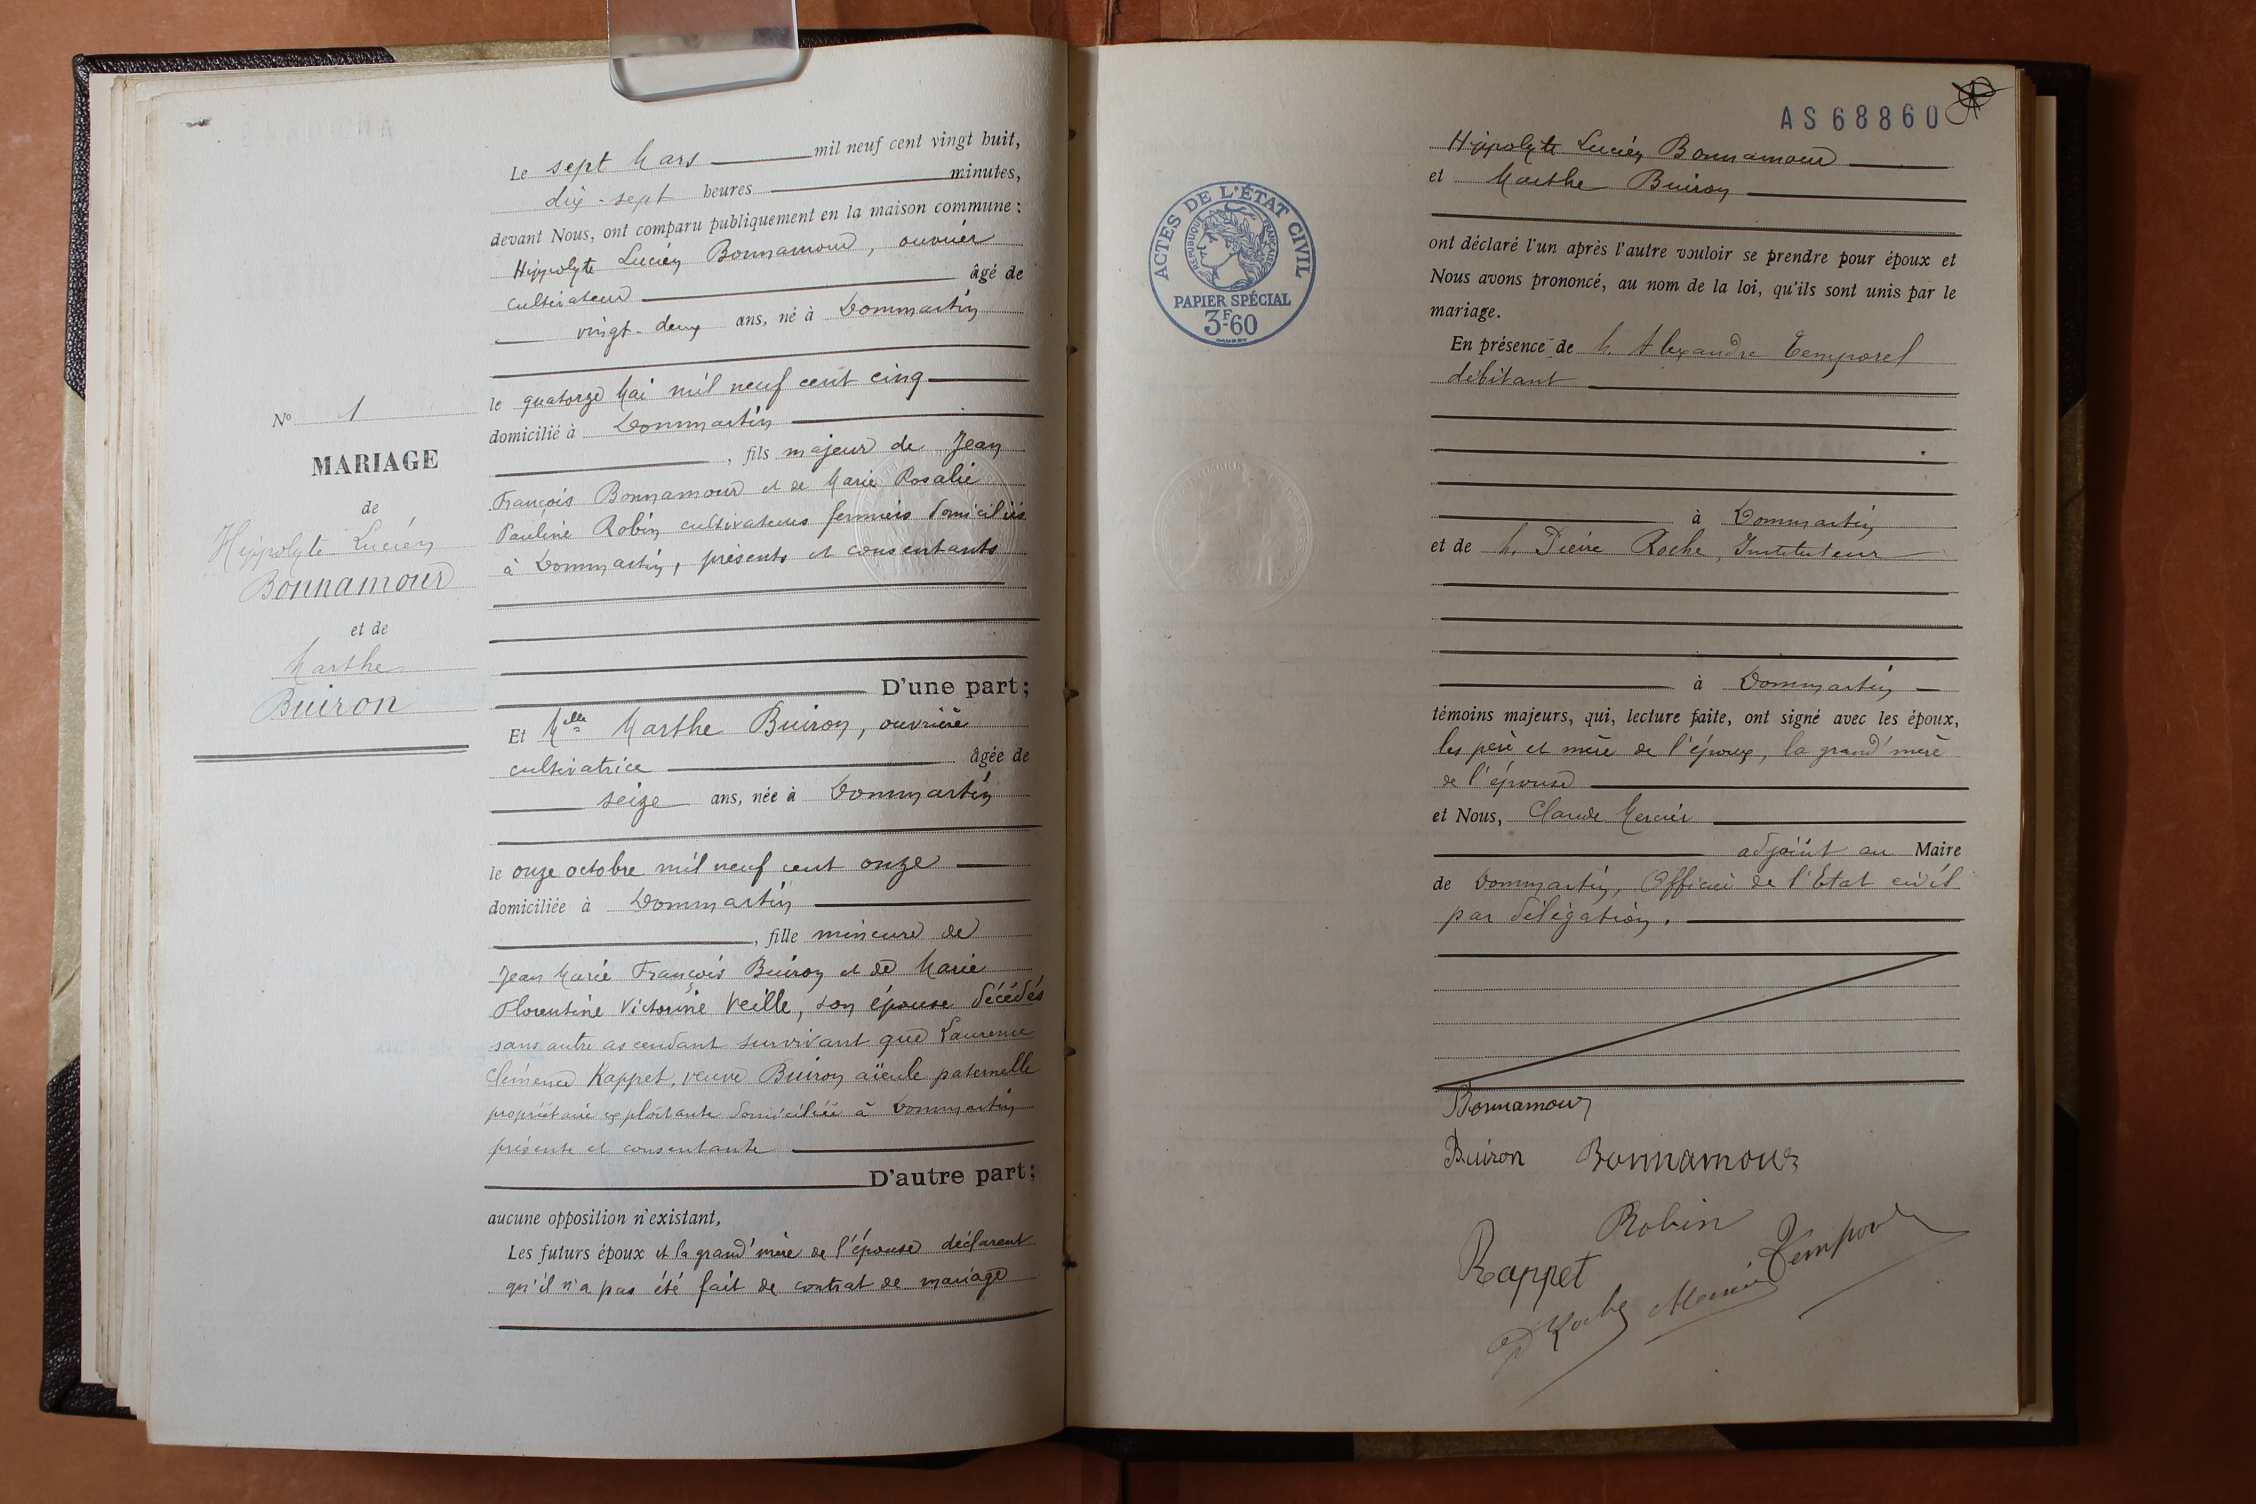 Le sept Mars mil neuf cent vingt huit,
dix-sept heures minutes,
devant Nous, ont comparu publiquement en la maison commune :
Hippolyte Lucien Bonnamour, ouvrier
cultivateur âgé de
vingt-deux ans, né à Dommartin
le quatorze Mai mil neuf cent cinq
domicilié à Dommartin
, fils majeur de Jean
François Bonnamour et de Marie Rosalie
Pauline Robin cultivateurs fermiers domiciliés
à Dommartin, présents et consentants
D'une part;
Et Melle Marthe Buiron, ouvrière
cultivatrice âgée de
seize ans, née à Dommartin
le onze octobre mil neuf cent onze
domiciliée à Dommartin
, fille mineure de
Jean Marie François Buiron et de Marie
Florentine Victorine Veille, son épouse décédés
sans autre ascendant survivant que Laurence
Clémence Rappet, veuve Buiron aïeule paternelle
propriétaire exploitante domiciliée à Dommartin
présente et consentante
D'autre part;
aucune opposition n'existant,
Les futurs époux et la grand'mère de l'épouse déclarent
qu'il n'a pas été fait de contrat de mariage
No 1
MARIAGE
de
Hippolyte Lucien
Bonnamour
et de
Marthe
Buiron
AS68860
ACTES DE L'ÉTAT CIVIL
RÉPUBLIQUE FRANÇAISE
PAPIER SPÉCIAL
3F60
Hippolyte Lucien Bonnamour
et Marthe Buiron
ont déclaré l'un après l'autre vouloir se prendre pour époux et
Nous avons prononcé, au nom de la loi, qu'ils sont unis par le
mariage.
En présence de M. Alexandre Temporel
débitant
à Dommartin
et de M. Pierre Roche, Instituteur
à Dommartin
témoins majeurs, qui, lecture faite, ont signé avec les époux,
les père et mère de l'époux, la grand'mère
de l'épouse
et Nous, Claude Mercier
adjoint au Maire
de Dommartin, Officier de l'Etat civil
par délégation.
Bonnamour
Buiron Bonnamour
Robin
Rappet Temporel
P Roche Mercier